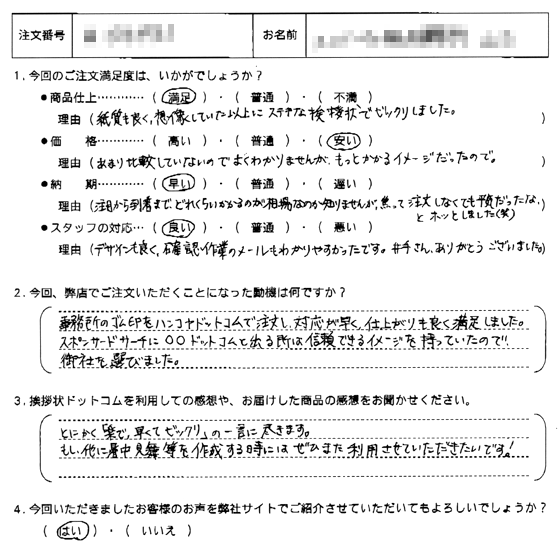 注文番号 お名前
1. 今回のご注文満足度は、いかがでしょうか？
●商品仕上…………（ 満足 ）・（ 普通 ）・（ 不満 ）
理由（紙質も良く、想像していた以上にステキな挨拶状でビックリしました。）
●価　　格…………（ 高い ）・（ 普通 ）・（ 安い ）
理由（あまり比較していないのでよくわかりませんが、もっとかかるイメージだったので。）
●納　　期…………（ 早い ）・（ 普通 ）・（ 遅い ）
理由（注文から到着まで、どれくらいかかるのが相場なのか知りませんが、焦って注文しなくても大丈夫だったな、
とホッとしました(笑)）
●スタッフの対応…（ 良い ）・（ 普通 ）・（ 悪い ）
理由（デザインも良く、確認作業のメールもわかりやすかったです。井手さん、ありがとうございました。）
2. 今回、弊店でご注文いただくことになった動機は何ですか？
事務所のゴム印をハンコヤドットコムで注文し、対応が早く、仕上がりも良く満足しました。
スポンサードサーチに〇〇ドットコムと出る所は信頼できるイメージを持っていたので
御社を選びました。
3. 挨拶状ドットコムを利用しての感想や、お届けした商品の感想をお聞かせください。
とにかく「楽で、早くてビックリ」の一言に尽きます。
もし、他に暑中見舞等を作成する時には ぜひまた利用させていただきたいです。!
4. 今回いただきましたお客様のお声を弊社サイトでご紹介させていただいてもよろしいでしょうか？
（ はい ）・（ いいえ ）